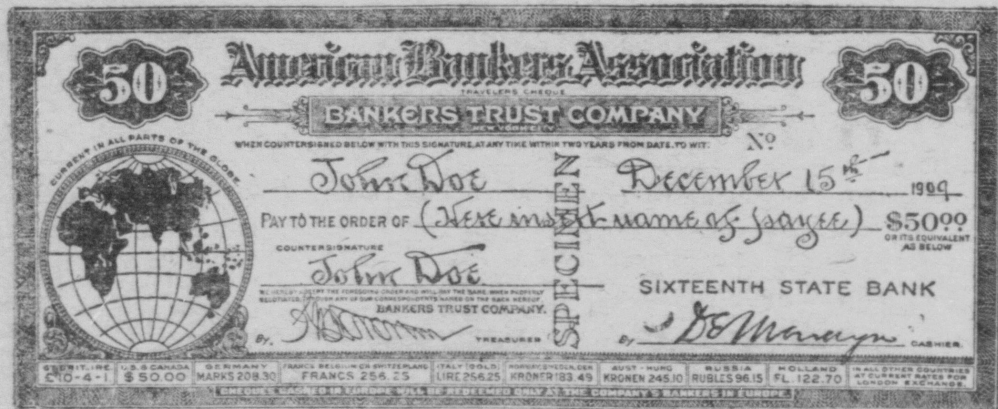 50 American Bankers Association 50
TRAVELERS CHEQUE
BANKERS TRUST COMPANY
NEW YORK CITY
CURRENT IN ALL PARTS OF THE GLOBE
WHEN COUNTERSIGNED BELOW WITH THIS SIGNATURE, AT ANY TIME WITHIN TWO YEARS FROM DATE, TO WIT: No
John Doe December 15th 1909
PAY TO THE ORDER OF (Here insert name of payee) $50.00
OR ITS EQUIVALENT
AS BELOW
COUNTERSIGNATURE
John Doe
SPECIMEN
SIXTEENTH STATE BANK
BANKERS TRUST COMPANY.
BY, TREASURER
BY, CASHIER.
GT. BRIT., IRE. £10-4-1
U.S. & CANADA $50.00
GERMANY MARKS 208.30
FRANCE BELGIUM OR SWITZERLAND FRANCS 256.25
ITALY (GOLD) LIRE 256.25
KRONER 183.49
AUST-HUNG KRONEN 245.10
RUSSIA RUBLES 96.15
HOLLAND FL. 122.70
IN ALL OTHER COUNTRIES AT CURRENT RATES FOR LONDON EXCHANGE.
CHEQUES CASHED IN EUROPE WILL BE REDEEMED ONLY AT THE COMPANY'S BANKERS IN EUROPE